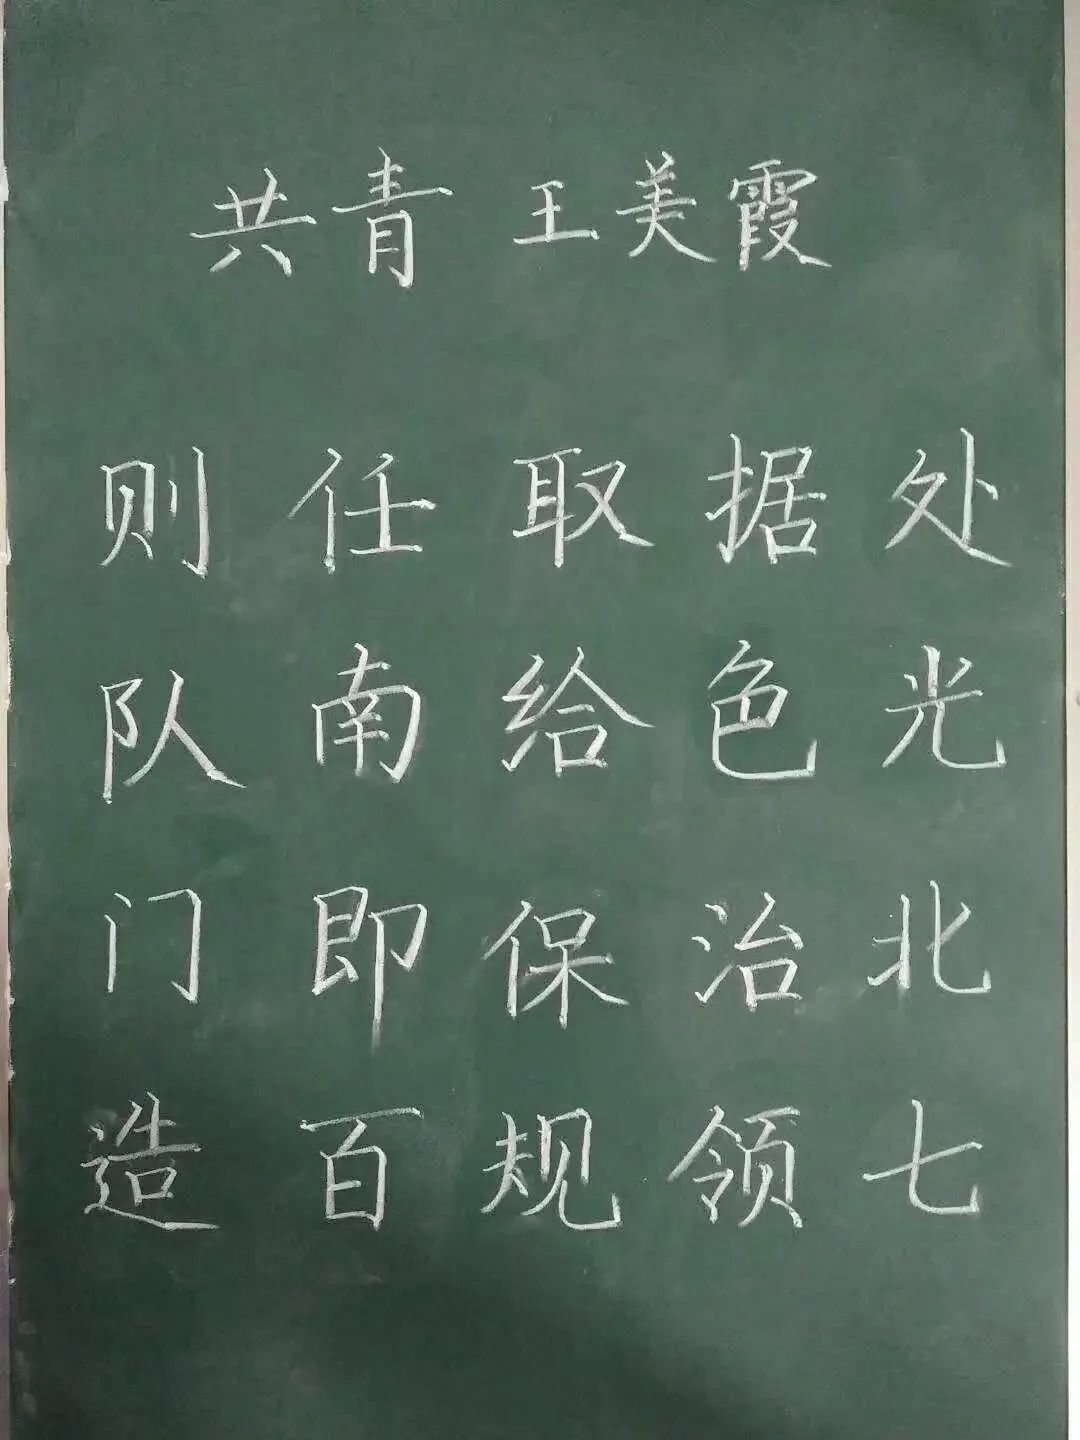 共青 王美霞
则任取据处
队南给色光
门即保治北
造百规领七